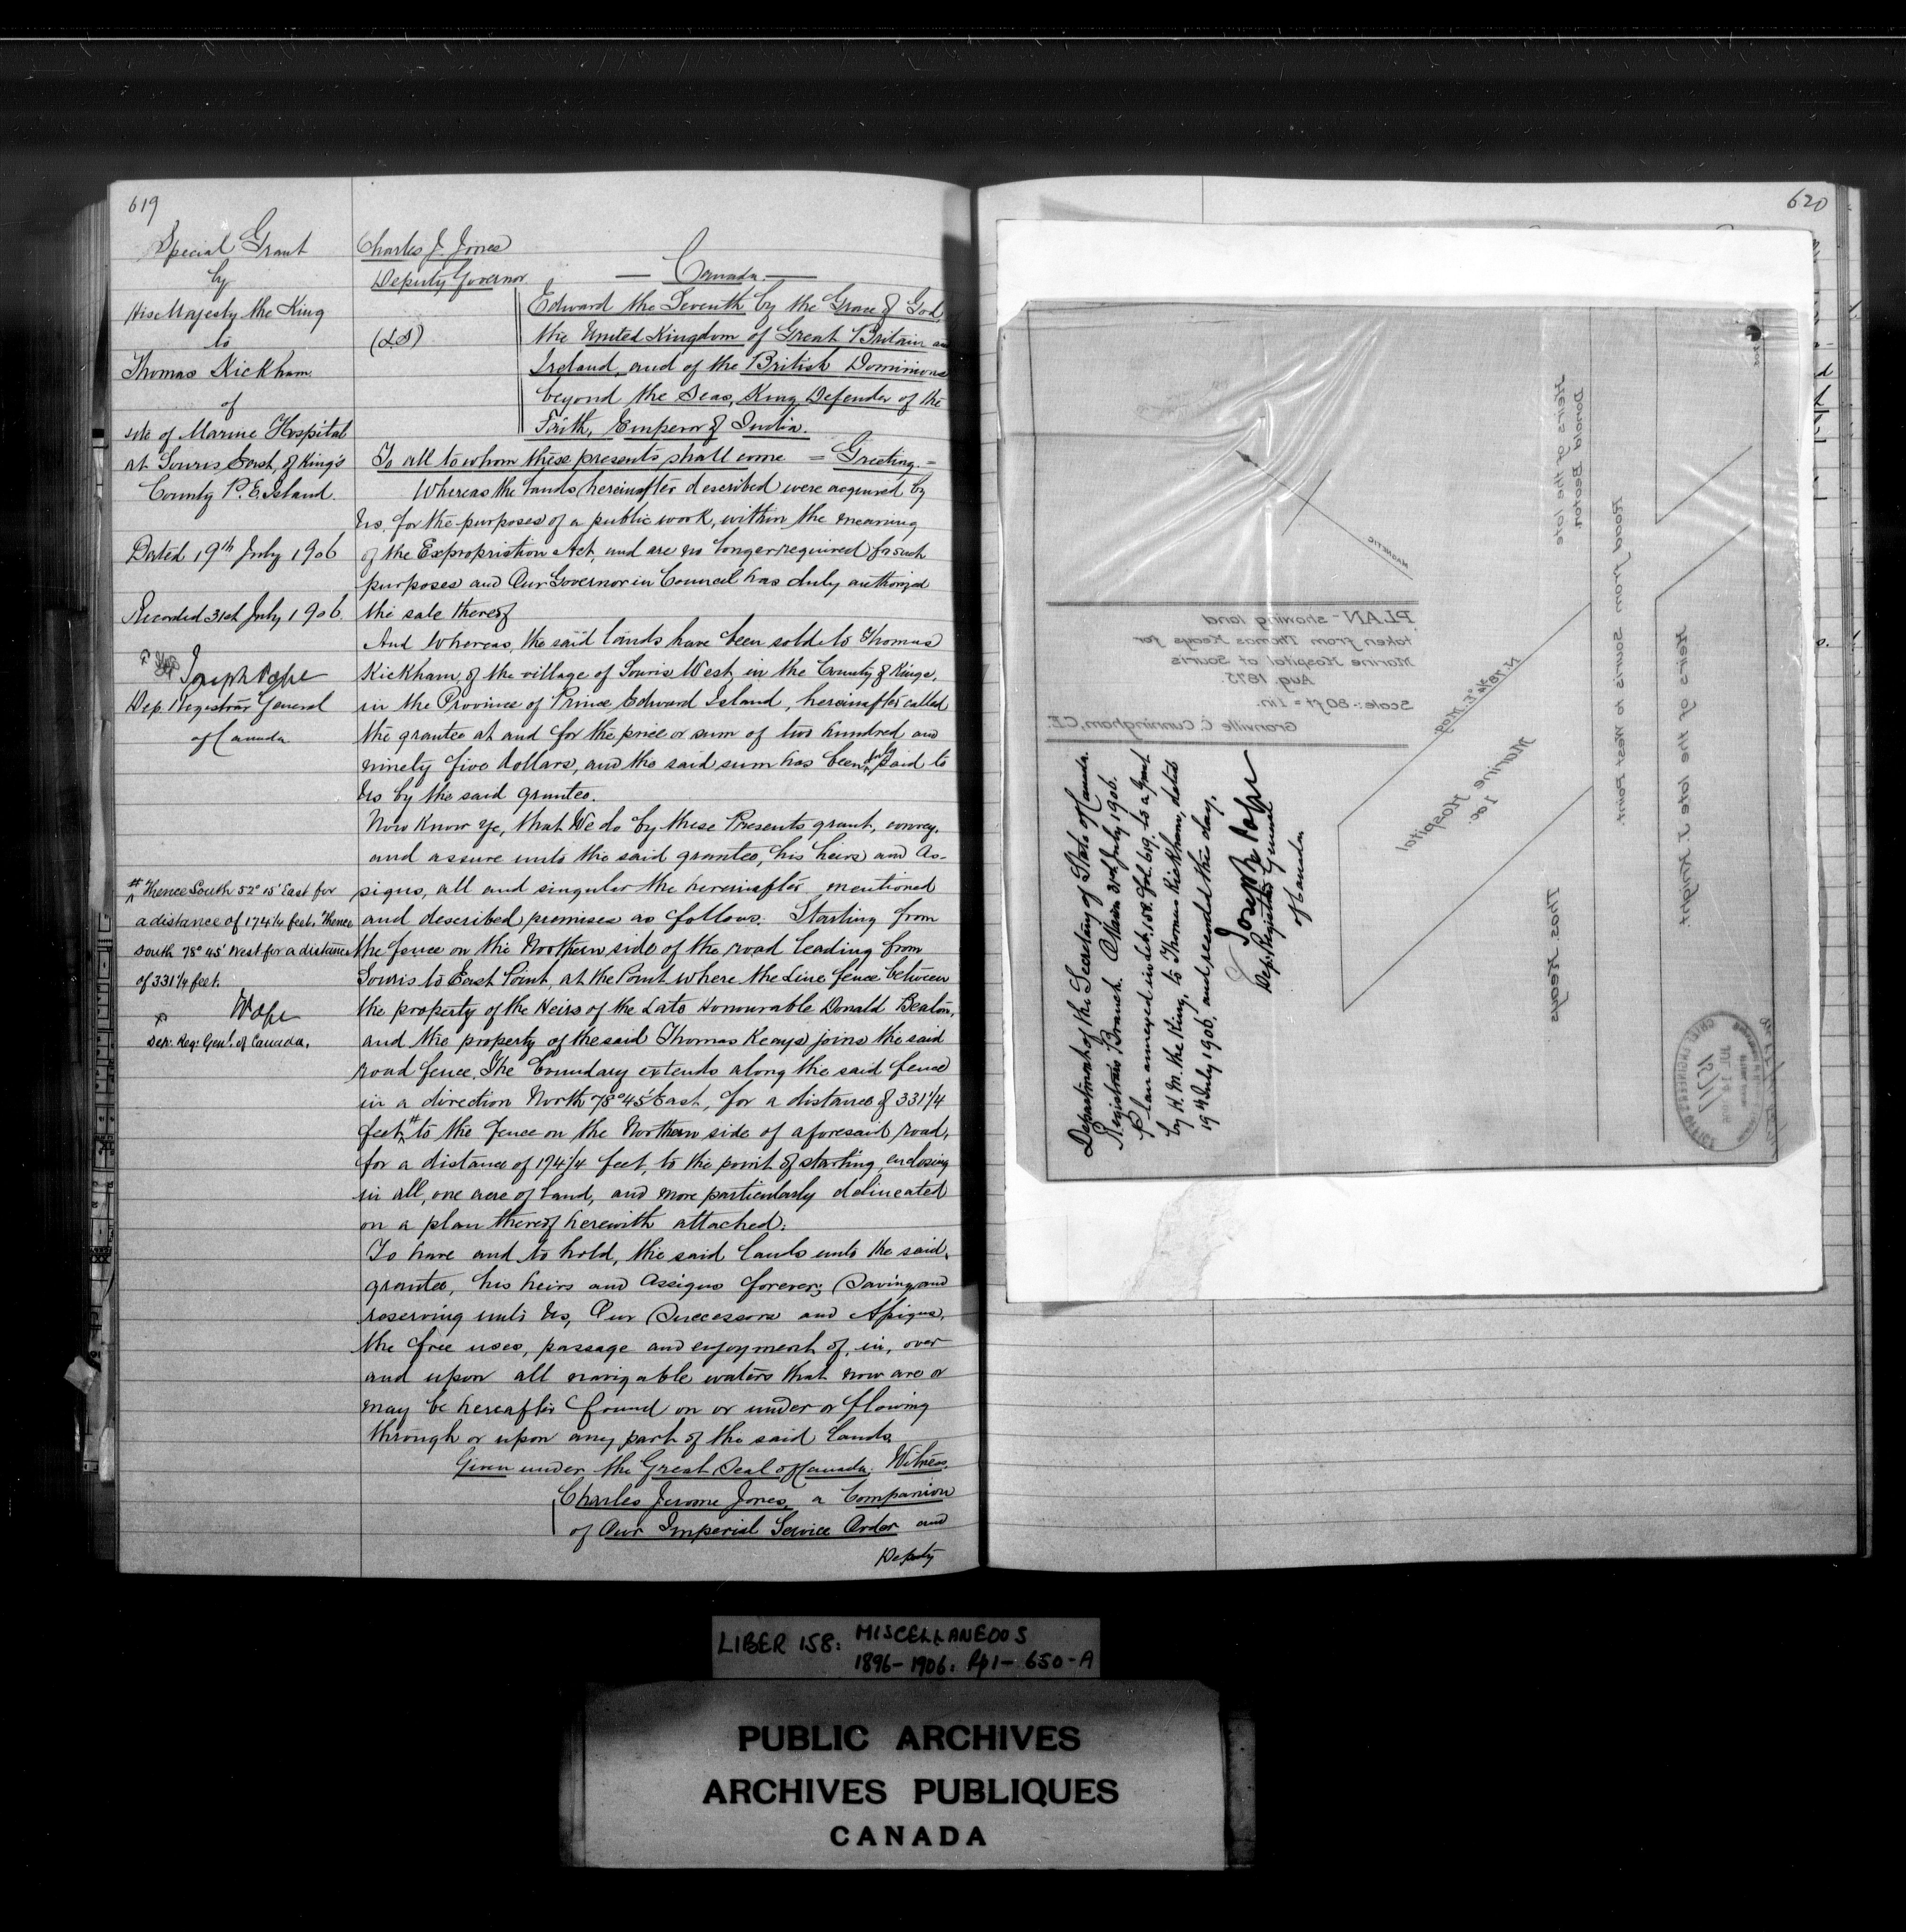 619
Special Grant
by
His Majesty the King
to
Thomas Kickham
of
site of Marine Hospital
at Souris East, of King's
County P. E. Island.
Dated 19th July 1906
Recorded 31st July 1906.
Joseph Pope
Dep. Registrar General
of Canada
# Thence South 52° 15' East for
a distance of 174¼ feet, Thence
South 78° 45' West for a distance
of 331¼ feet.
Pope
Dep. Reg. Genl. of Canada.
Charles J. Jones
Deputy Governor
(LS)
— Canada. —
Edward the Seventh by the Grace of God,
the United Kingdom of Great Britain and
Ireland, and of the British Dominions
beyond the Seas, King, Defender of the
Faith, Emperor of India.
To all to whom these presents shall come = Greeting. =
Whereas the lands hereinafter described were acquired by
Us, for the purposes of a public work, within the meaning
of the Expropriation Act, and are no longer required for such
purposes and Our Governor in Council has duly authorized
the sale thereof
And Whereas, the said lands have been sold to Thomas
Kickham, of the village of Souris West, in the County of Kings,
in the Province of Prince Edward Island, hereinafter called
the grantee at and for the price or sum of two hundred and
ninety five dollars, and the said sum has been duly paid to
Us by the said grantee.
Now Know Ye, that We do by these Presents grant, convey,
and assure unto the said grantee, his heirs and As-
signs, all and singular the hereinafter mentioned
and described premises as follows: Starting from
the fence on the Northern side of the road leading from
Souris to East Point, at the Point where the Line fence between
the property of the Heirs of the Late Honourable Donald Beaton,
and the property of the said Thomas Keays joins the said
road fence. The boundary extends along the said fence
in a direction North 78° 45' East, for a distance of 331¼
feet # to the fence on the Northern side of aforesaid road,
for a distance of 174¼ feet, to the point of starting, enclosing
in all, one acre of land, and more particularly delineated
on a plan thereof herewith attached.
To have and to hold, the said lands unto the said,
grantee, his heirs and assigns forever; Saving and
reserving unto Us, Our Successors and Assigns,
the free uses, passage and enjoyment of, in, over
and upon all navigable waters that now are or
may be hereafter found on or under or flowing
through or upon any part of the said lands.
Given under the Great Seal of Canada. Witness.
Charles Jerome Jones, a Companion
of Our Imperial Service Order and
Deputy
620
MAGNETIC
PLAN - showing land
taken from Thomas Keays for
Marine Hospital at Souris
Aug. 1875.
Scale:- 80 ft = 1 in.
Granville C. Cunningham, C.E.
Heirs of the late
Donald Beaton.
Road from Souris to West Point.
Heirs of the late J. Knight.
Marine Hospital
1 ac.
Thos. Keays
CHIEF ENGINEER'S OFFICE
Department of the Secretary of State of Canada.
Registrar's Branch. Ottawa 31st July 1906.
Plan annexed in Lib. 158. Fol. 619. to a Grant
by H. M. the King, to Thomas Kickham, dated
19th July 1906, and recorded this day.
Joseph Pope
Dep. Registrar General
of Canada.
LIBER 158: MISCELLANEOUS
1896-1906. Pp 1- 650-A
PUBLIC ARCHIVES
ARCHIVES PUBLIQUES
CANADA